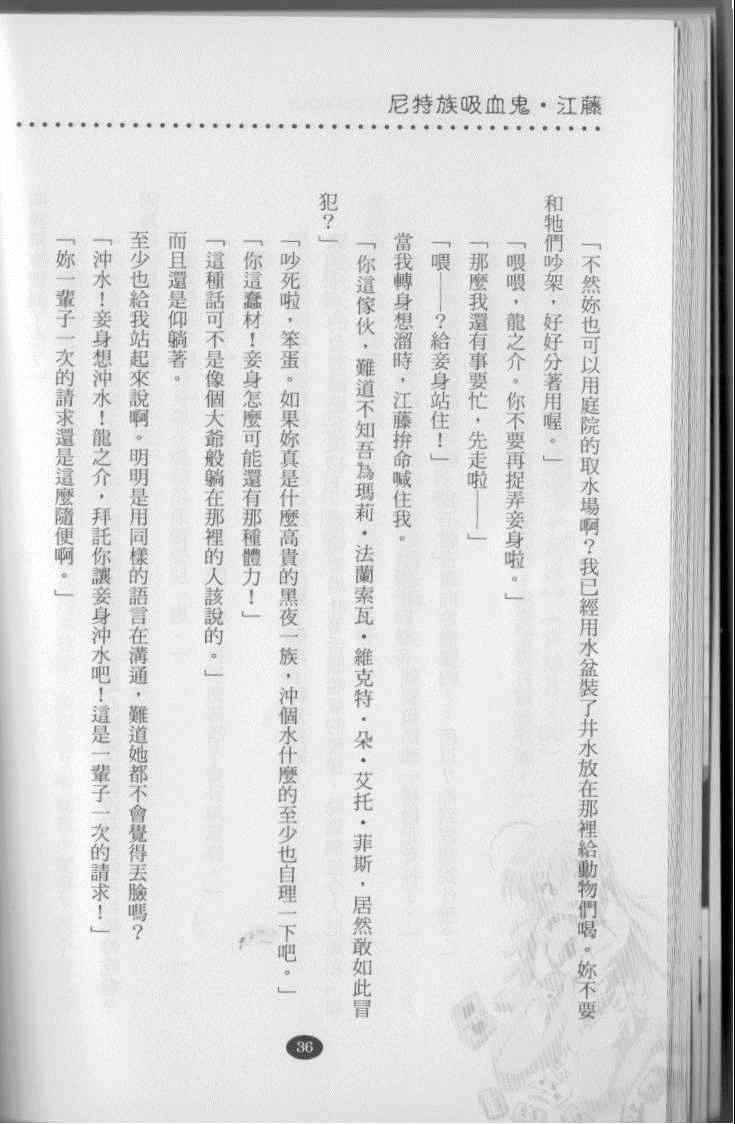 尼特族吸血鬼・江藤
「不然妳也可以用庭院的取水場啊？我已經用水盆裝了井水放在那裡給動物們喝。妳不要
和牠們吵架，好好分著用喔。」
「喂喂，龍之介。你不要再捉弄妾身啦。」
「那麼我還有事要忙，先走啦——」
「喂——？給妾身站住！」
當我轉身想溜時，江藤拚命喊住我。
「你這傢伙，難道不知吾為瑪莉・法蘭索瓦・維克特・朵・艾托・菲斯，居然敢如此冒
犯？」
「吵死啦，笨蛋。如果妳真是什麼高貴的黑夜一族，沖個水什麼的至少也自理一下吧。」
「你這蠢材！妾身怎麼可能還有那種體力！」
「這種話可不是像個大爺般躺在那裡的人該說的。」
而且還是仰躺著。
至少也給我站起來說啊。明明是用同樣的語言在溝通，難道她都不會覺得丟臉嗎？
「沖水！妾身想沖水！龍之介，拜託你讓妾身沖水吧！這是一輩子一次的請求！」
「妳一輩子一次的請求還是這麼隨便啊。」
36